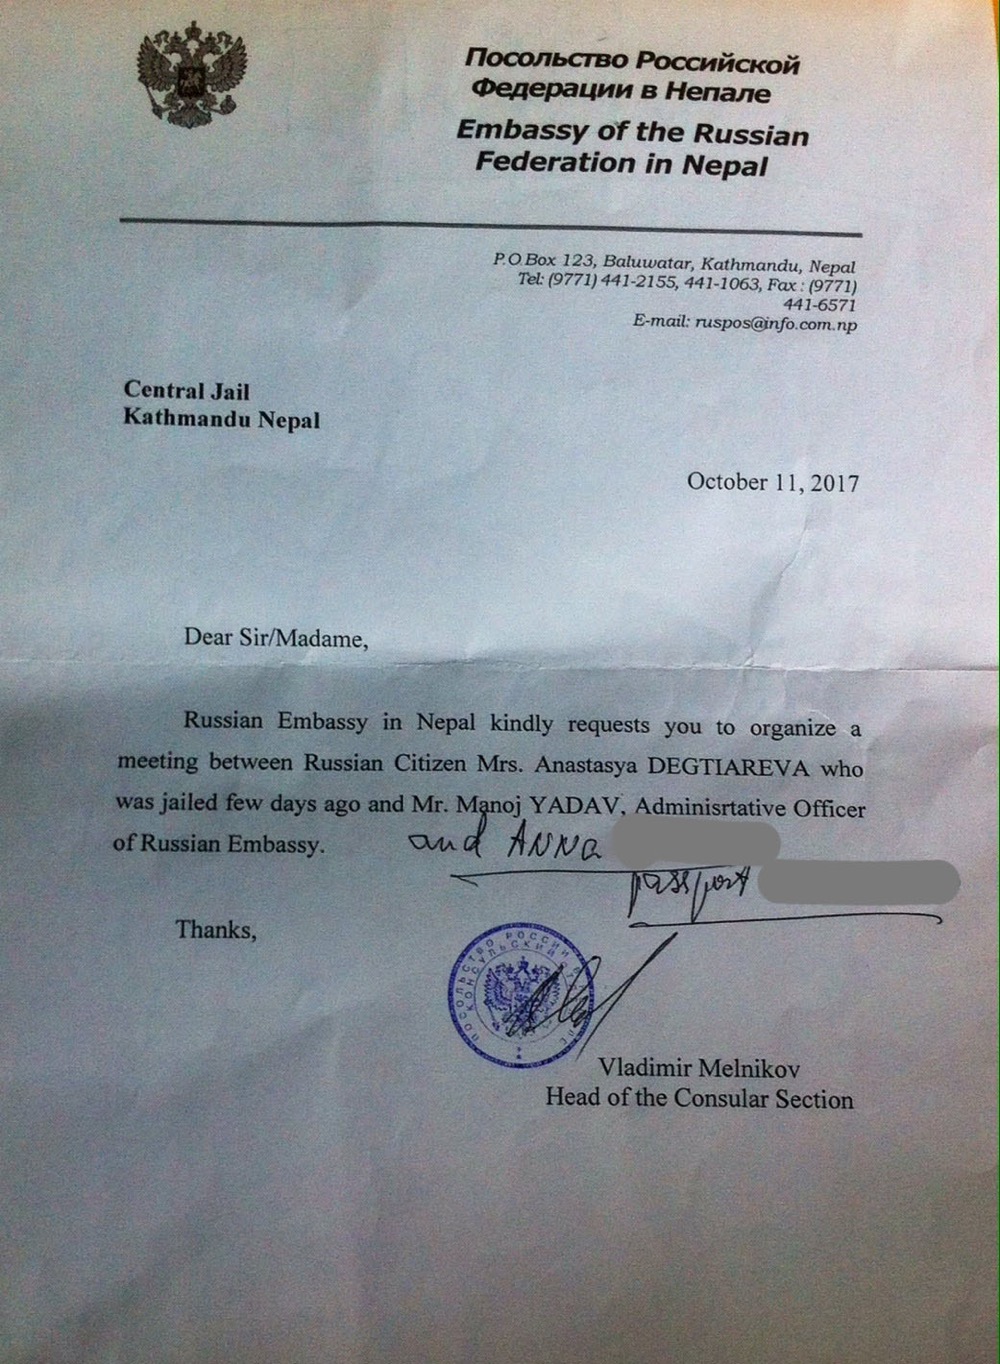 Посольство Российской
Федерации в Непале
Embassy of the Russian
Federation in Nepal
P.O Box 123, Baluwatar, Kathmandu, Nepal
Tel: (9771) 441-2155, 441-1063, Fax : (9771)
441-6571
E-mail: ruspos@info.com.np
Central Jail
Kathmandu Nepal
October 11, 2017
Dear Sir/Madame,
Russian Embassy in Nepal kindly requests you to organize a
meeting between Russian Citizen Mrs. Anastasya DEGTIAREVA who
was jailed few days ago and Mr. Manoj YADAV, Adminisrtative Officer
of Russian Embassy. and ANNA
passport
Thanks,
ПОСОЛЬСТВО РОССИИ
КОНСУЛЬСКИЙ
Vladimir Melnikov
Head of the Consular Section